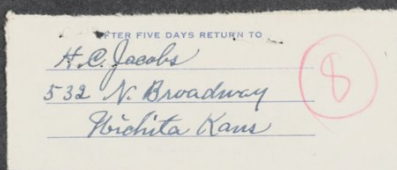 AFTER FIVE DAYS RETURN TO
H. C. Jacobs
532 N. Broadway
Wichita Kans
8